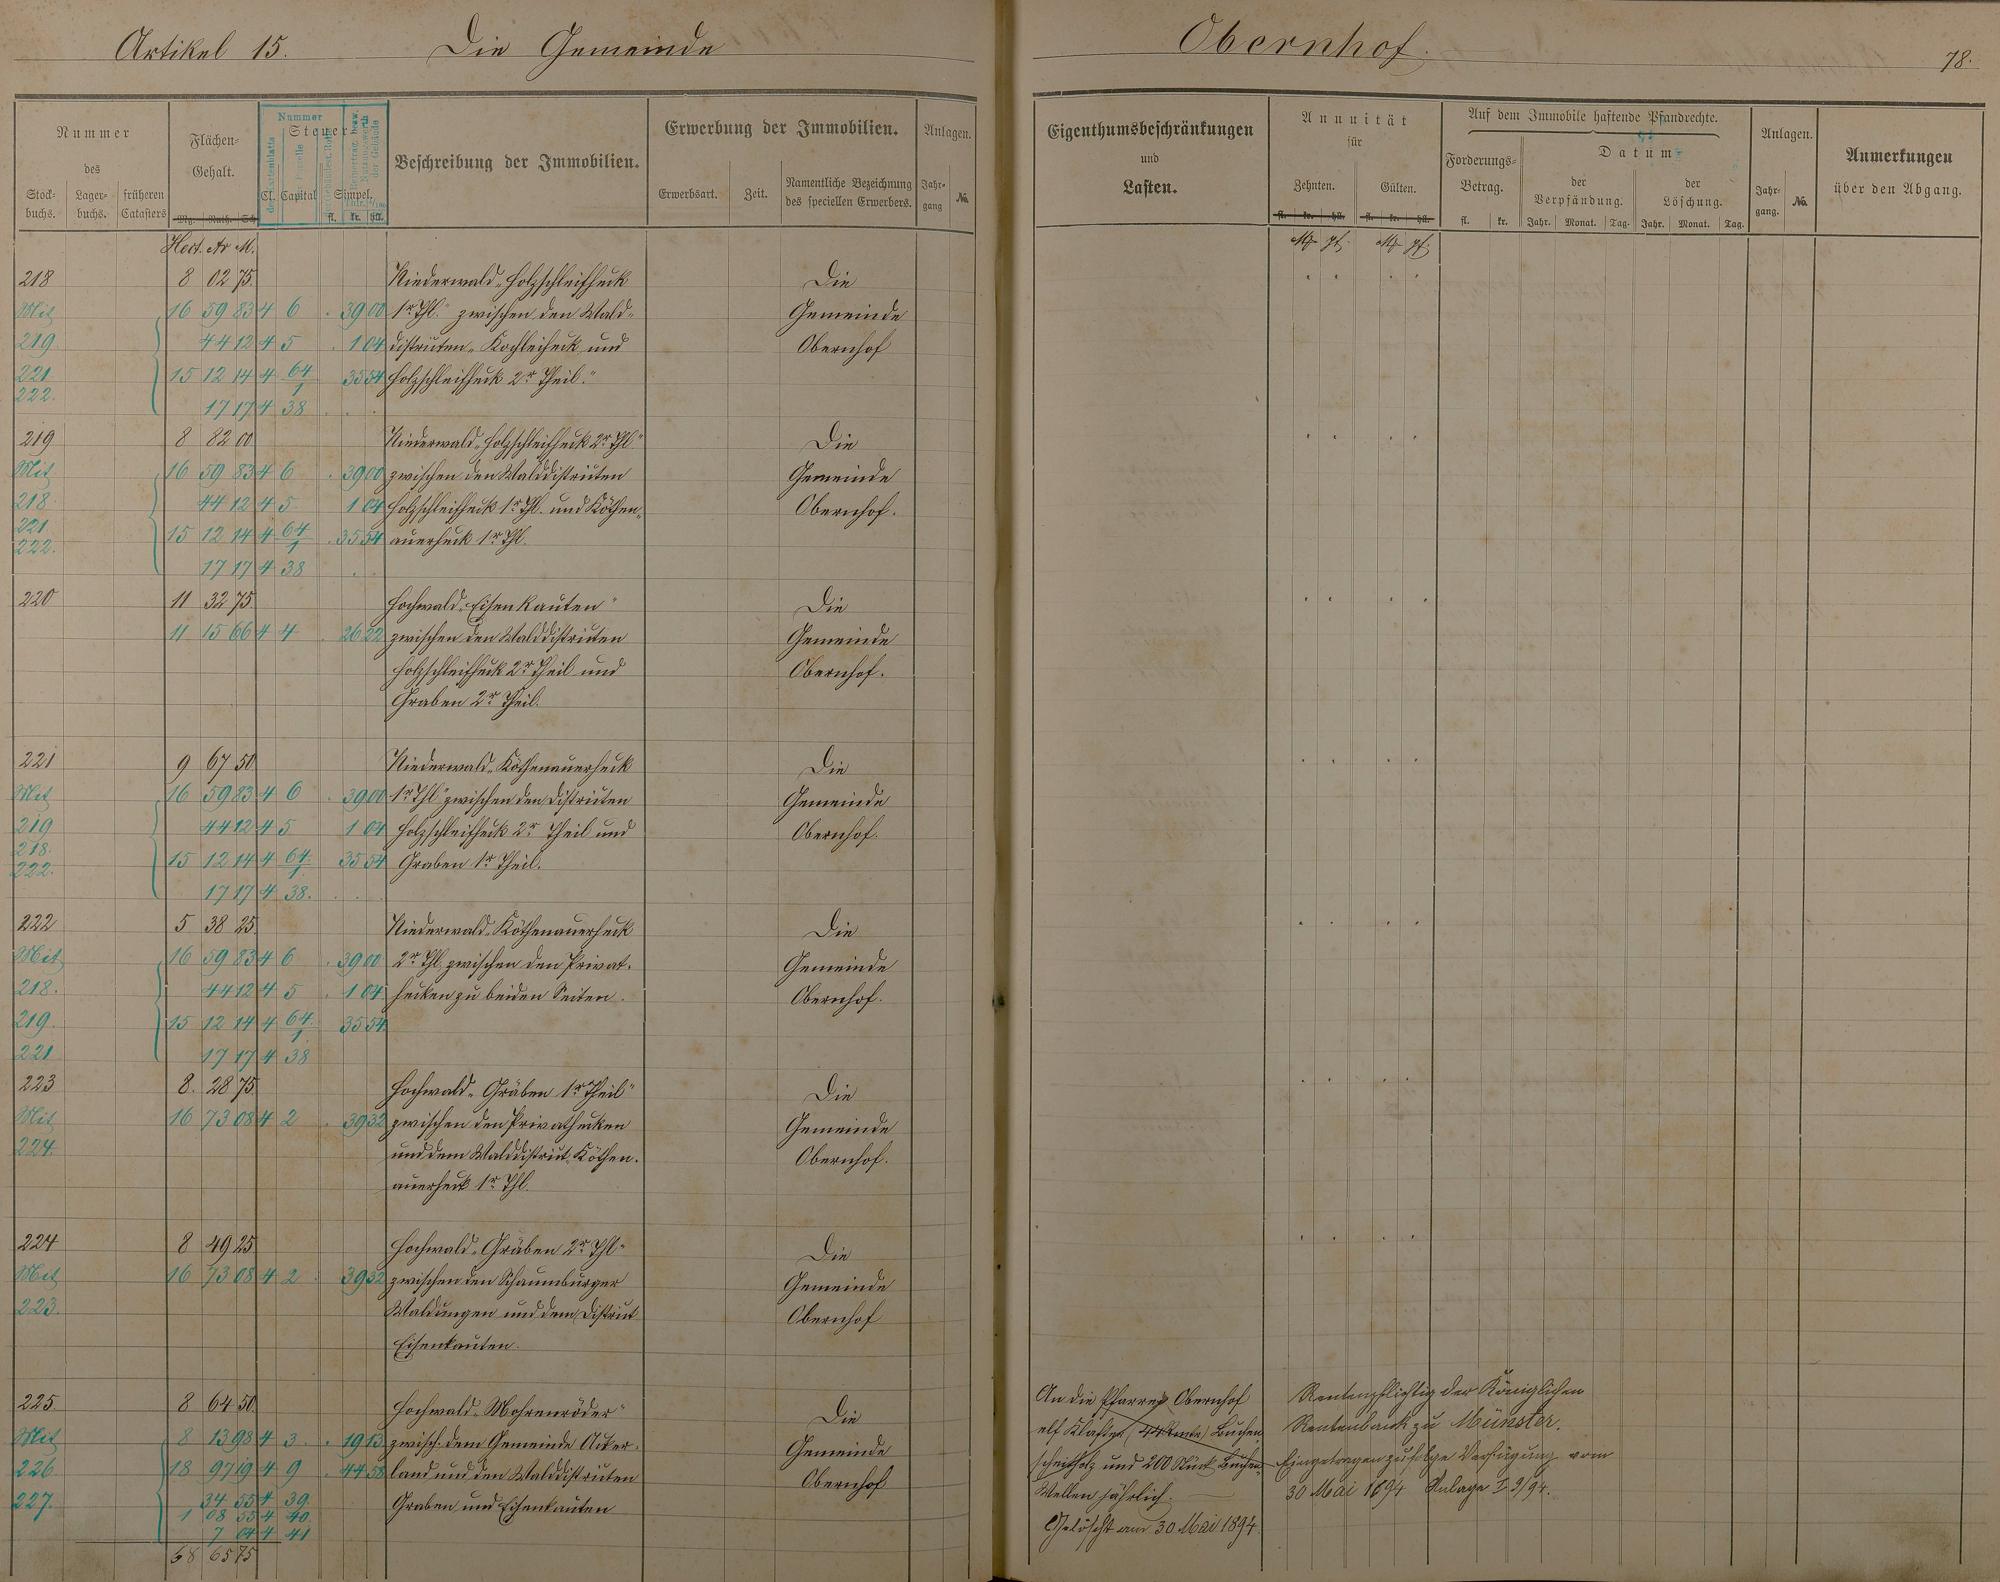 Artikel 15. Die Gemeinde Obernhof. 78.
Nummer
des
Stock-
buchs.
Lager-
buchs.
früheren
Catasters
Flächen-
Gehalt.
Mg. Ruth. Sch.
Nummer
Steuer
Cl. Capital Simpel.
fl. kr. hll.
Beschreibung der Immobilien.
Erwerbung der Immobilien.
Erwerbsart. Zeit.
Namentliche Bezeichnung
des speciellen Erwerbers.
Anlagen.
Jahr-
gang
No.
Eigenthumsbeschränkungen
und
Lasten.
Annuität
für
Zehnten. Gülten.
fl. kr. hll. fl. kr. hll.
Auf dem Immobile haftende Pfandrechte.
Forderungs-
Betrag.
fl. kr.
Datum
der
Verpfändung.
der
Löschung.
Jahr. Monat. Tag. Jahr. Monat. Tag.
Anlagen.
Jahr-
gang.
No.
Anmerkungen
über den Abgang.
Hect. Ar M.
218 8 02 75. Niederwald „Holzschleifheck Die
Mit 16 59 83 4 6 . 39 00 1r Thl." zwischen den Wald- Gemeinde
219 44 12 4 5 . 1 04 distrikten „Kochleiheck und Obernhof
221 15 12 14 4 64/1 35 54 Holzschleifheck 2r Theil."
222. 17 17 4 38 . .
219 8 82 00 Niederwald „Holzschleifheck 2r Thl" Die
Mit 16 59 83 4 6 . 39 00 zwischen den Walddistrikten Gemeinde
218. 44 12 4 5. 1 04 Holzschleifheck 1r Thl. und Köthen- Obernhof.
221. 15 12 14 4 64/1 . 35 54 auerheck 1r Thl.
222. 17 17 4 38 .
220 11 32 75. Hochwald „Eisenkauten" Die
11 15 66 4 4 . 26 22 zwischen den Walddistrikten Gemeinde
Holzschleifheck 2r Theil und Obernhof.
Graben 2r Theil.
221 9 67 50 Niederwald „Köthenauerheck Die
Mit 16 59 83 4 6 . 39 00 1r Thl" zwischen den Distrikten Gemeinde
219 44 12 4 5 1 04 Holzschleifheck 2r Theil und Obernhof.
218. 15 12 14 4 64/1 35 54 Graben 1r Theil.
222. 17 17 4 38. . .
222 5 38 25. Niederwald „Köthenauerheck Die
Mit 16 59 83 4 6 . 39 00 2r Thl zwischen den Privat- Gemeinde
218. 44 12 4 5 . 1 04 hecken zu beiden Seiten. Obernhof.
219. 15 12 14 4 64/1 35 54
221 17 17 4 38
223 8. 28 75. Hochwald „Gräben 1r Theil" Die
Mit 16 73 08 4 2 . 39 32 zwischen den Privathecken Gemeinde
224. und dem Walddistrikt „Köthen- Obernhof.
auerheck 1r Thl.
224 8 49 25 Hochwald „Gräben 2r Thl" Die
Mit 16 73 08 4 2 . 39 32 zwischen den Schaumburger Gemeinde
223. Waldungen und dem Distrikt Obernhof
Eisenkauten.
225. 8 64 50. Hochwald „Mohrenröder" Die
Mit 8 13 98 4 3. . 19 13 zwisch. dem Gemeinde Acker- Gemeinde
226 18 97 19 4 9 . 44 58 land und den Walddistrikten Obernhof
227. 34 55 4 39. Graben und Eisenkauten
1 08 55 4 40.
7 04 4 41
68 65 75
Mk Pf. Mk Pf.
An die Pfarrey Obernhof
elf Klafter Buchen
scheitholz und 200 Stück Buchen-
Wellen jährlich.
Gelöscht am 30 Mai 1894.
Rentenpflichtig der Königlichen
Rentenbank zu Münster.
Eingetragen zufolge Verfügung vom
30 Mai 1894 Anlage I 9/94.